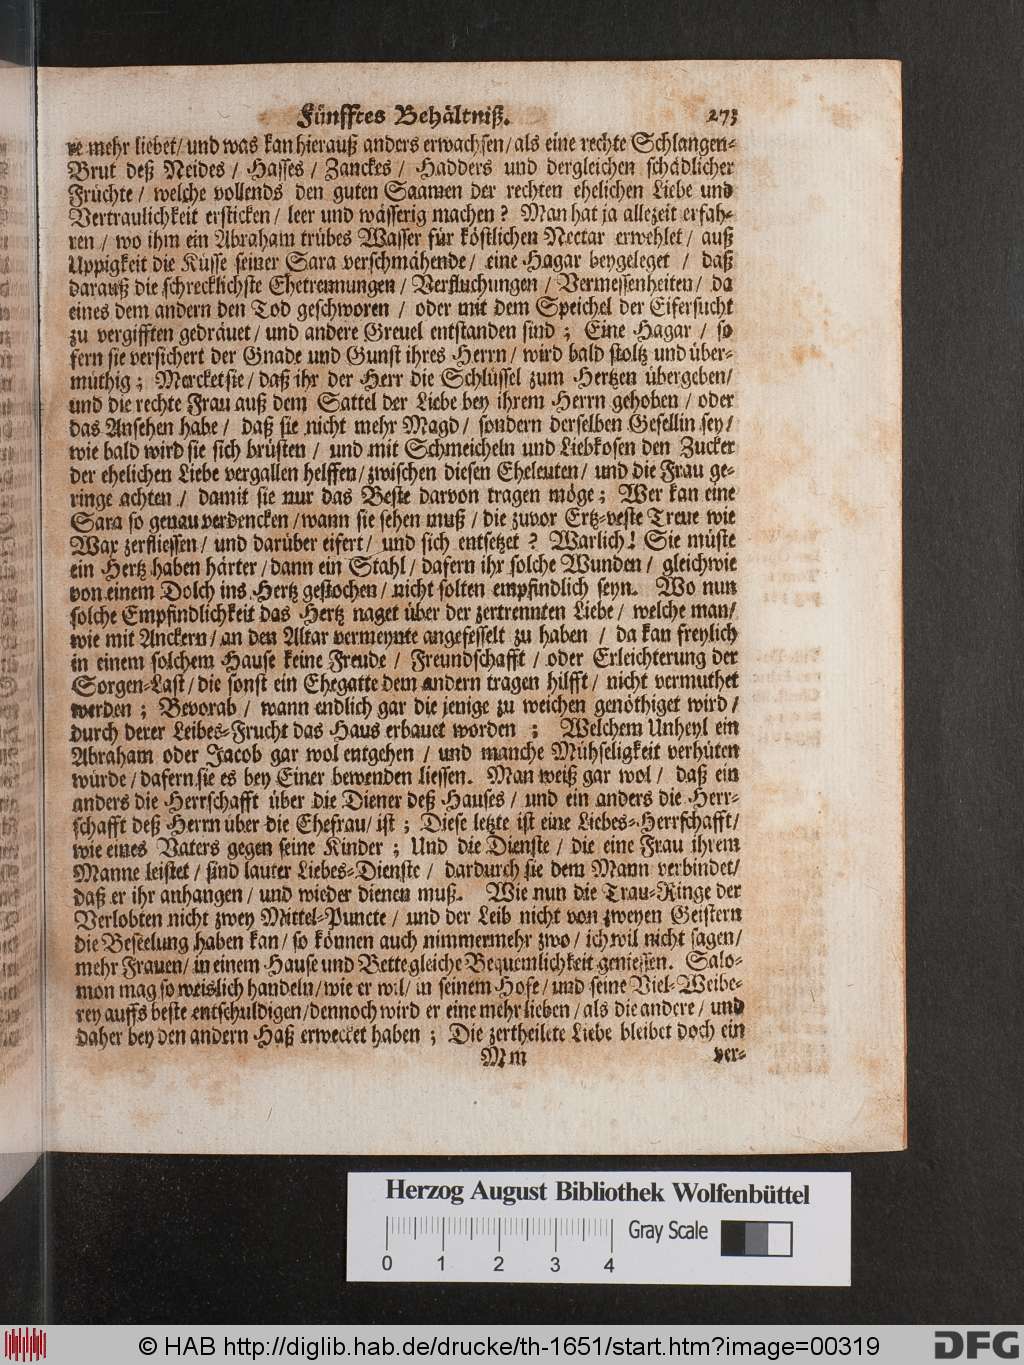 Fünfftes Behältniß. 273
re mehr liebet/ und was kan hierauß anders erwachsen/ als eine rechte Schlangen-
Brut deß Neides / Hasses / Zanckes / Hadders und dergleichen schädlicher
Früchte / welche vollends den guten Saamen der rechten ehelichen Liebe und
Vertraulichkeit ersticken / leer und wässerig machen ? Man hat ja allezeit erfah-
ren / wo ihm ein Abraham trübes Wasser für köstlichen Nectar erwehlet / auß
Uppigkeit die Küsse seiner Sara verschmähende / eine Hagar beygeleget / daß
darauß die schrecklichste Ehetrennungen / Verfluchungen / Vermessenheiten / da
eines dem andern den Tod geschworen / oder mit dem Speichel der Eifersucht
zu vergifften gedräuet / und andere Greuel entstanden sind ; Eine Hagar / so
fern sie versichert der Gnade und Gunst ihres Herrn / wird bald stoltz und über-
müthig ; Mercket sie / daß ihr der Herr die Schlüssel zum Hertzen übergeben/
und die rechte Frau auß dem Sattel der Liebe bey ihrem Herrn gehoben / oder
das Ansehen habe / daß sie nicht mehr Magd / sondern derselben Gesellin sey/
wie bald wird sie sich brüsten / und mit Schmeicheln und Liebkosen den Zucker
der ehelichen Liebe vergallen helffen / zwischen diesen Eheleuten / und die Frau ge-
ringe achten / damit sie nur das Beste darvon tragen möge ; Wer kan eine
Sara so genau verdencken / wann sie sehen muß / die zuvor Ertz-veste Treue wie
Wax zerfliessen / und darüber eifert / und sich entsetzet ? Warlich! Sie müste
ein Hertz haben härter / dann ein Stahl / dafern ihr solche Wunden / gleichwie
von einem Dolch ins Hertz gestochen / nicht solten empfindlich seyn. Wo nun
solche Empfindlichkeit das Hertz naget über der zertrennten Liebe / welche man/
wie mit Anckern / an den Altar vermeynte angefesselt zu haben / da kan freylich
in einem solchem Hause keine Freude / Freundschafft / oder Erleichterung der
Sorgen-Last / die sonst ein Ehegatte dem andern tragen hilfft / nicht vermuthet
werden ; Bevorab / wann endlich gar die jenige zu weichen genöthiget wird /
durch derer Leibes-Frucht das Haus erbauet worden ; Welchem Unheyl ein
Abraham oder Jacob gar wol entgehen / und manche Mühseligkeit verhüten
würde / dafern sie es bey Einer bewenden liessen. Man weiß gar wol / daß ein
anders die Herrschafft über die Diener deß Hauses / und ein anders die Herr-
schafft deß Herrn über die Ehefrau / ist ; Diese letzte ist eine Liebes-Herrschafft/
wie eines Vaters gegen seine Kinder ; Und die Dienste / die eine Frau ihrem
Manne leistet / sind lauter Liebes-Dienste / dardurch sie dem Mann verbindet/
daß er ihr anhangen / und wieder dienen muß. Wie nun die Trau-Ringe der
Verlobten nicht zwey Mittel-Puncte / und der Leib nicht von zweyen Geistern
die Beseelung haben kan / so können auch nimmermehr zwo / ich wil nicht sagen/
mehr Frauen / in einem Hause und Bette gleiche Bequemlichkeit geniessen. Salo-
mon mag so weislich handeln / wie er wil / in seinem Hofe / und seine Viel-Weibe-
rey auffs beste entschuldigen / dennoch wird er eine mehr lieben / als die andere / und
daher bey den andern Haß erwecket haben ; Die zertheilete Liebe bleibet doch ein
M m ver-
Herzog August Bibliothek Wolfenbüttel
Gray Scale
0 1 2 3 4
© HAB http://diglib.hab.de/drucke/th-1651/start.htm?image=00319
DFG